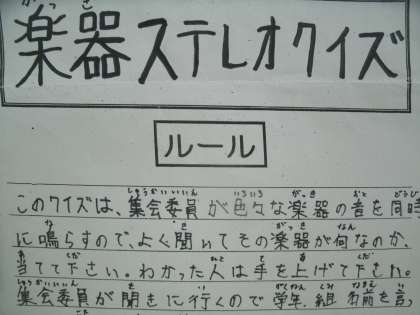 楽器ステレオクイズ
ルール
このクイズは、集会委員が色々な楽器の音を同時
に鳴らすので、よく聞いてその楽器が何なのか、
当てて下さい。わかった人は手を上げて下さい。
集会委員が聞きに行くので学年、組、名前を言